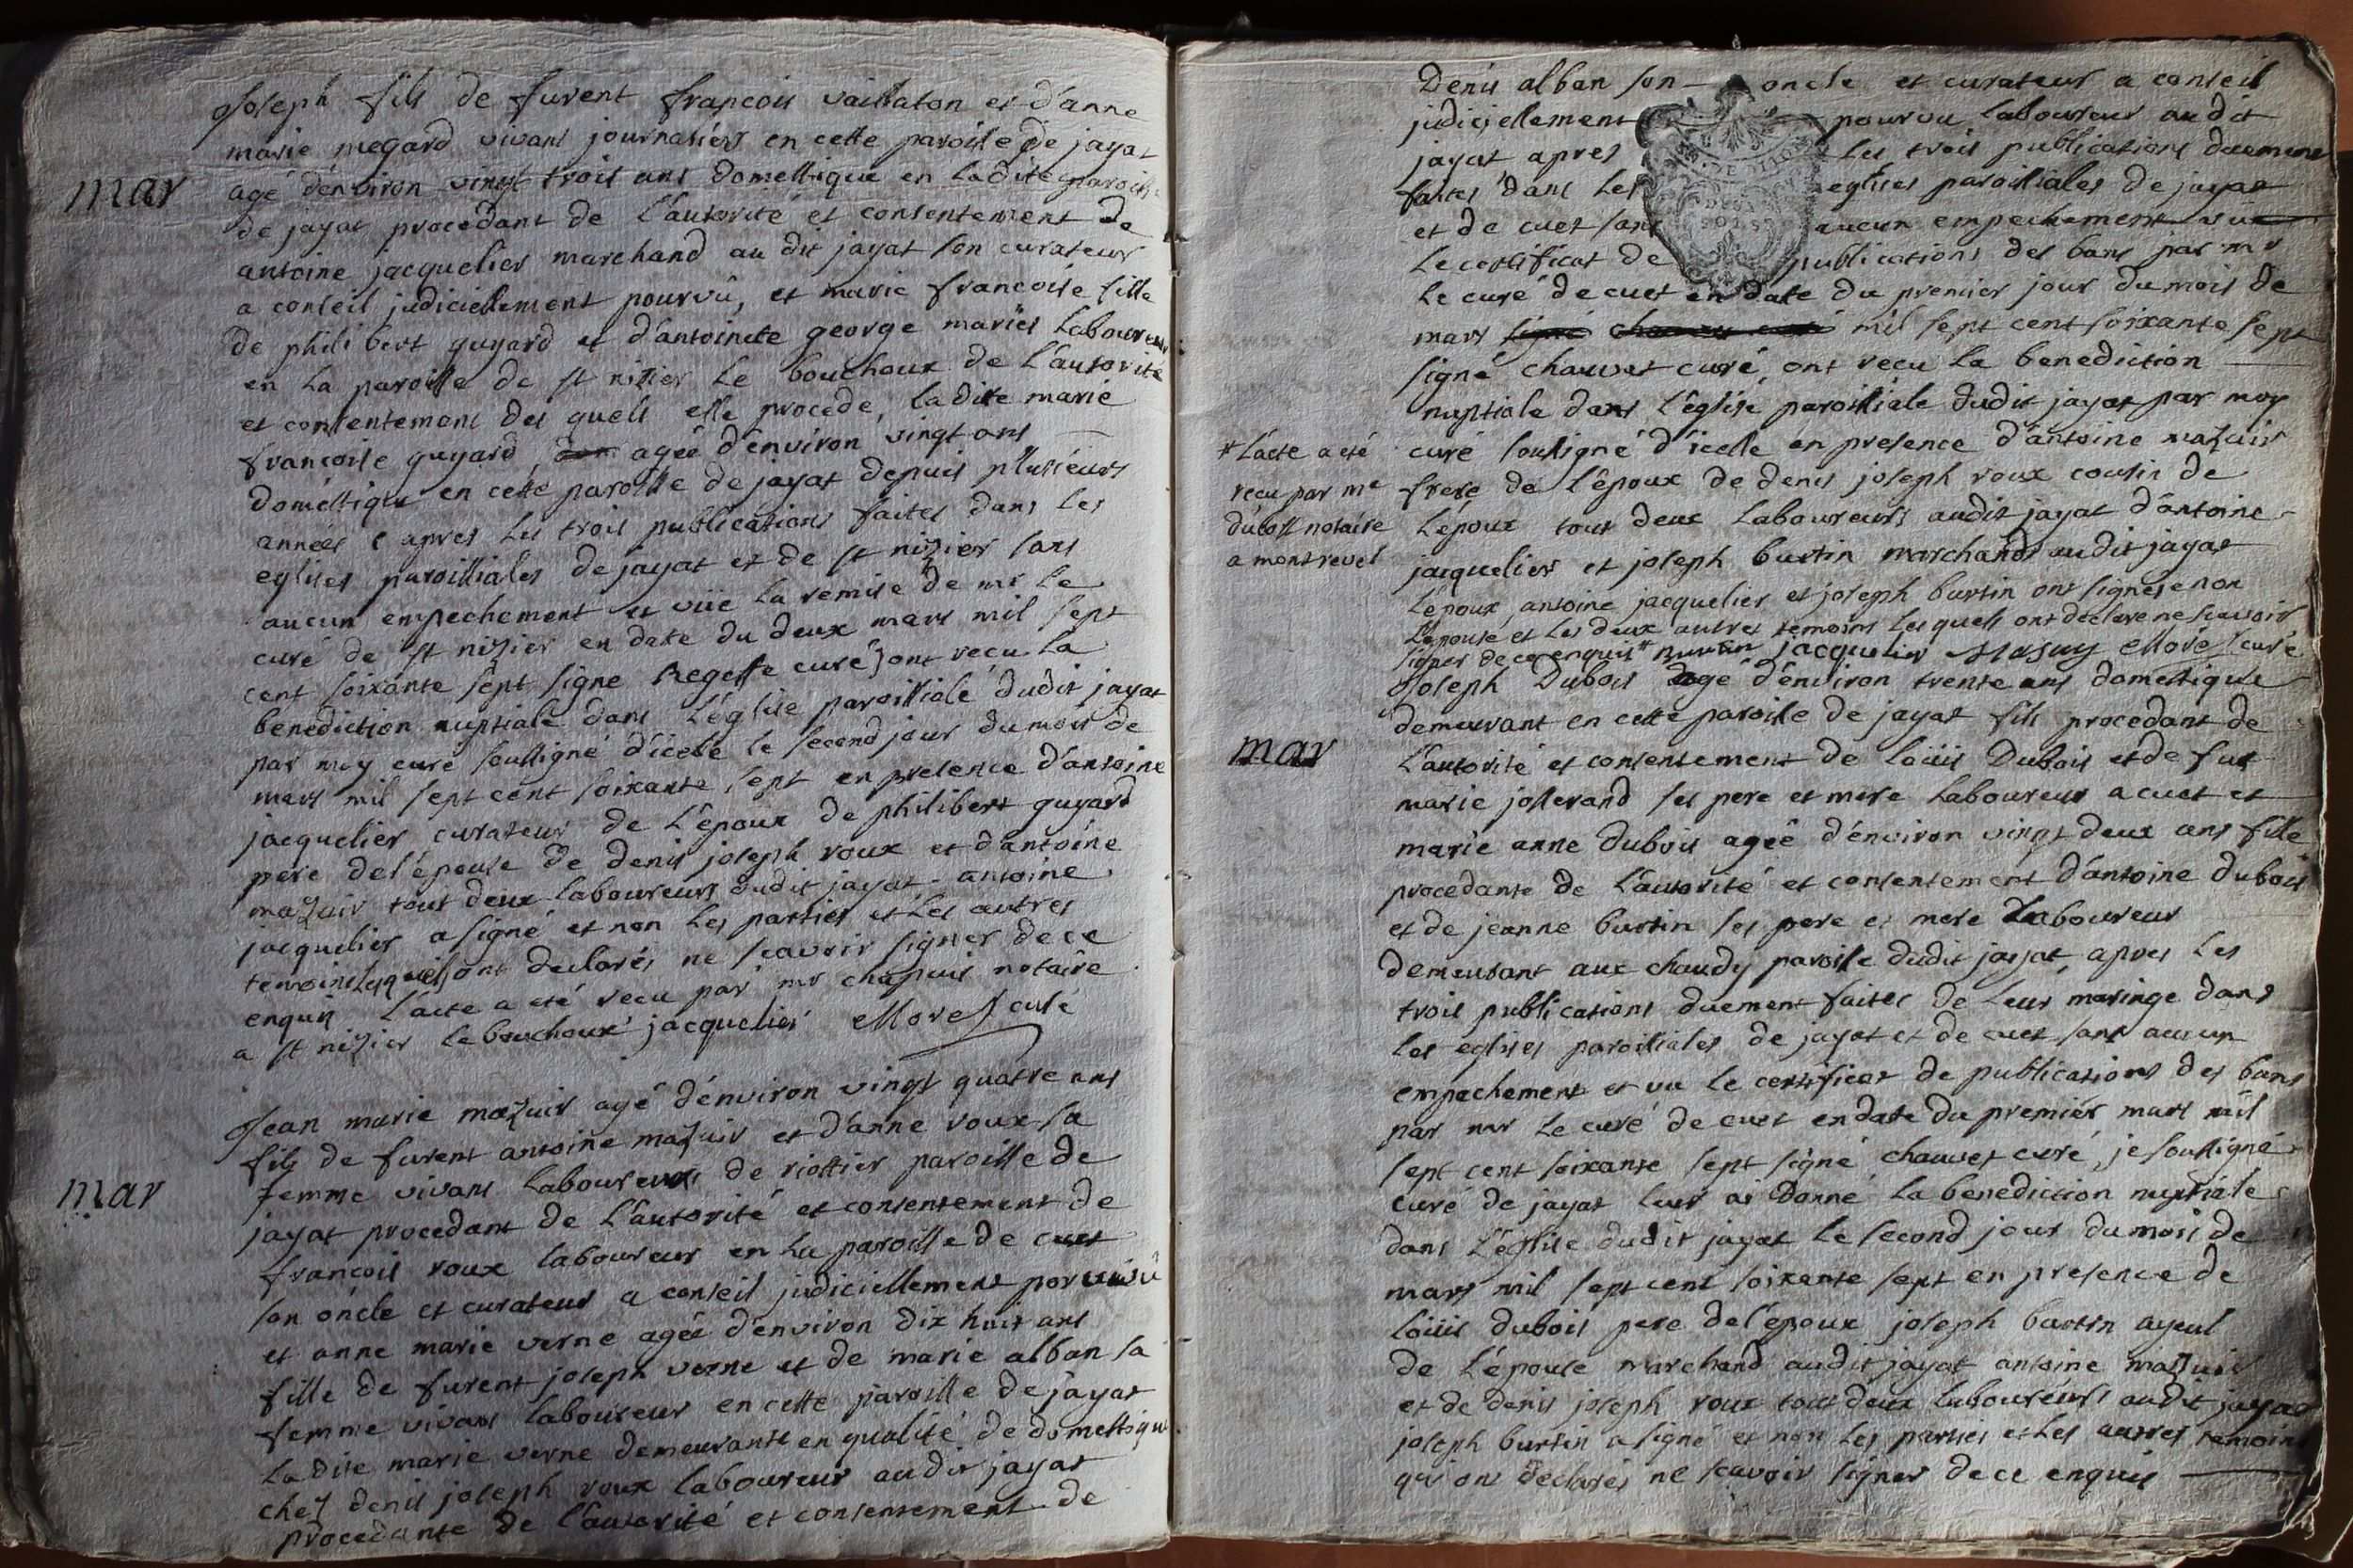 Joseph fils de furent francois vaillaton et d'anne
marie megard vivans journaliers en cette paroisse de jayat
mar
agé d'environ vingt trois ans domestique en ladite paroisse
de jayat procedant de l'autorité et consentement de
antoine jacquelier marchand au dit jayat son curateur
a conseil judiciellement pourvû, et marie francoise fille
de philibert guyard et d'antoinete george mariés laboureurs
en la paroisse de st nizier le bouchoux de l'autorité
et consentemans des quels elle procede, ladite marie
francoise guyard, agée d'environ vingt ans
doméstique en cette paroisse de jayat depuis plusieurs
années apres les trois publications faites dans les
eglises paroissiales de jayat et de st nizier sans
aucun empechement et vüe la remise de mr le
curé de st nizier en date du deux mars mil sept
cent soixante sept signé Regeffe curé, ont reçu la
benediction nuptiale dans l'église paroissiale dudit jayat
par moy curé soussigné d'icelle le second jour du mois de
mars mil sept cent soixante sept en presence d'antoine
jacquelier curateur de l'époux de philibert guyard
pere de l'épouse de denis joseph roux et d'antoine
mazuir tous deux laboureurs dudit jayat. antoine
jacquelier a signé et non les parties et les autres
temoins lesquels ont declarés ne scavoir signer de ce
enquis l'acte a eté recu par mr chapuis notaire
a st nizier le bouchoux jacquelier Morel curé
Jean marie mazuir agé d'environ vingt quatre ans
fils de furent antoine mazuir et d'anne roux sa
mar
femme vivans laboureurs de riottier paroisse de
jayat procedant de l'autorité et consentement de
francois roux laboureur en la paroisse de cuet
son oncle et curateur a conseil judiciellement
et anne marie verne agée d'environ dix huit ans
fille de furent joseph verne et de marie alban sa
femme vivans laboureur en cette paroisse de jayat
ladite marie verne demeurante en qualité de domestique
chez denis joseph roux laboureur audit jayat
procedante de l'autorité et consentement de
Denis alban son oncle et curateur a conseil
judiciellement pourvu laboureur audit
jayat apres les trois publications duement
faites dans les eglises paroissiales de jayat
et de cuet sans aucun empechement vüe
le certificat de publications des bans par mr
le curé de cuet en date du premier jour du mois de
mars mil sept cent soixante sept
signé chauvet curé, ont recu la benediction
nuptiale dans l'église paroissiale dudit jayat par moy
curé soussigné d'icelle en presence d'antoine mazuir
frere de l'époux de denis joseph roux cousin de
l'époux tous deux laboureurs audit jayat d'antoine
jacquelier et joseph burtin marchands audit jayat
l'époux antoine jacquelier et joseph burtin ont signés et non
l'epouse et les deux autres temoins les quels ont declare ne scavoir
signer de ce enquis* Burtin jacquelier Masuy Morel curé
* l'acte a eté
recu par me
dubost notaire
a montrevel
Joseph Dubois agé d'environ trente ans domestique
demeurant en cette paroisse de jayat fils procedant de
mar
l'autorité et consentement de loüis Dubois et de fue
marie josserand ses pere et mere laboureur a cuet et
marie anne Dubois agée d'environ vingt deux ans fille
procedante de l'autorité et consentement d'antoine dubois
et de jeanne burtin ses pere et mere laboureur
demeurant aux chaudy paroisse dudit jayat, apres les
trois publications duement faites de leur mariage dans
les eglises paroissiales de jayat et de cuet sans aucun
empechement et vu le certificat de publications des bans
par mr le curé de cuet en date du premier mars mil
sept cent soixante sept signé chauvet curé, je soussigné
curé de jayat leur ai donné la benediction nuptiale
dans l'église dudit jayat le second jour du mois de
mars mil sept cent soixante sept en presence de
loüis dubois pere de l'époux joseph burtin ayeul
de l'épouse marchand audit jayat antoine mazuir
et de denis joseph roux tous deux laboureurs audit jayat
joseph burtin a signé et non les parties et les autres temoins
qui on declarés ne scavoir signer de ce enquis